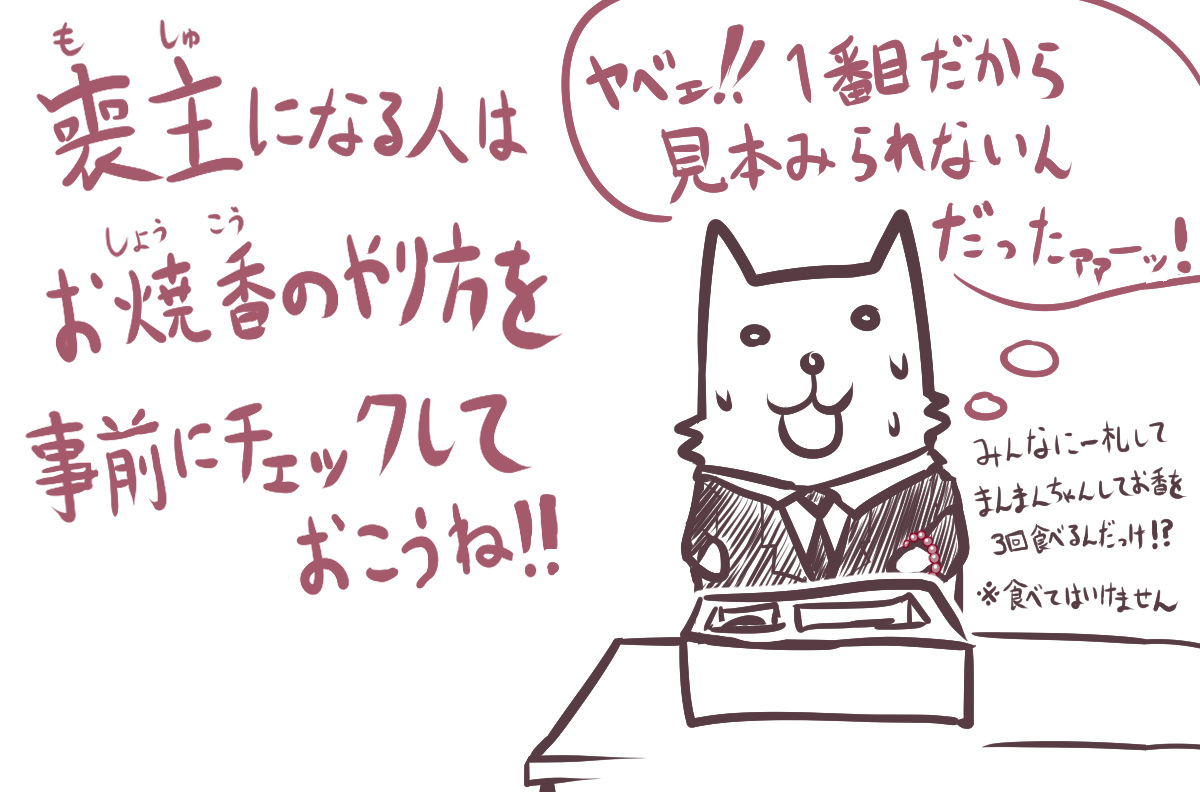 喪主になる人は
お焼香のやり方を
事前にチェックして
おこうね!!
ヤベェ!!1番目だから
見本みられないん
だったァァーッ!
みんなに一札して
まんまんちゃんしてお香を
3回食べるんだっけ!?
※食べてはいけません